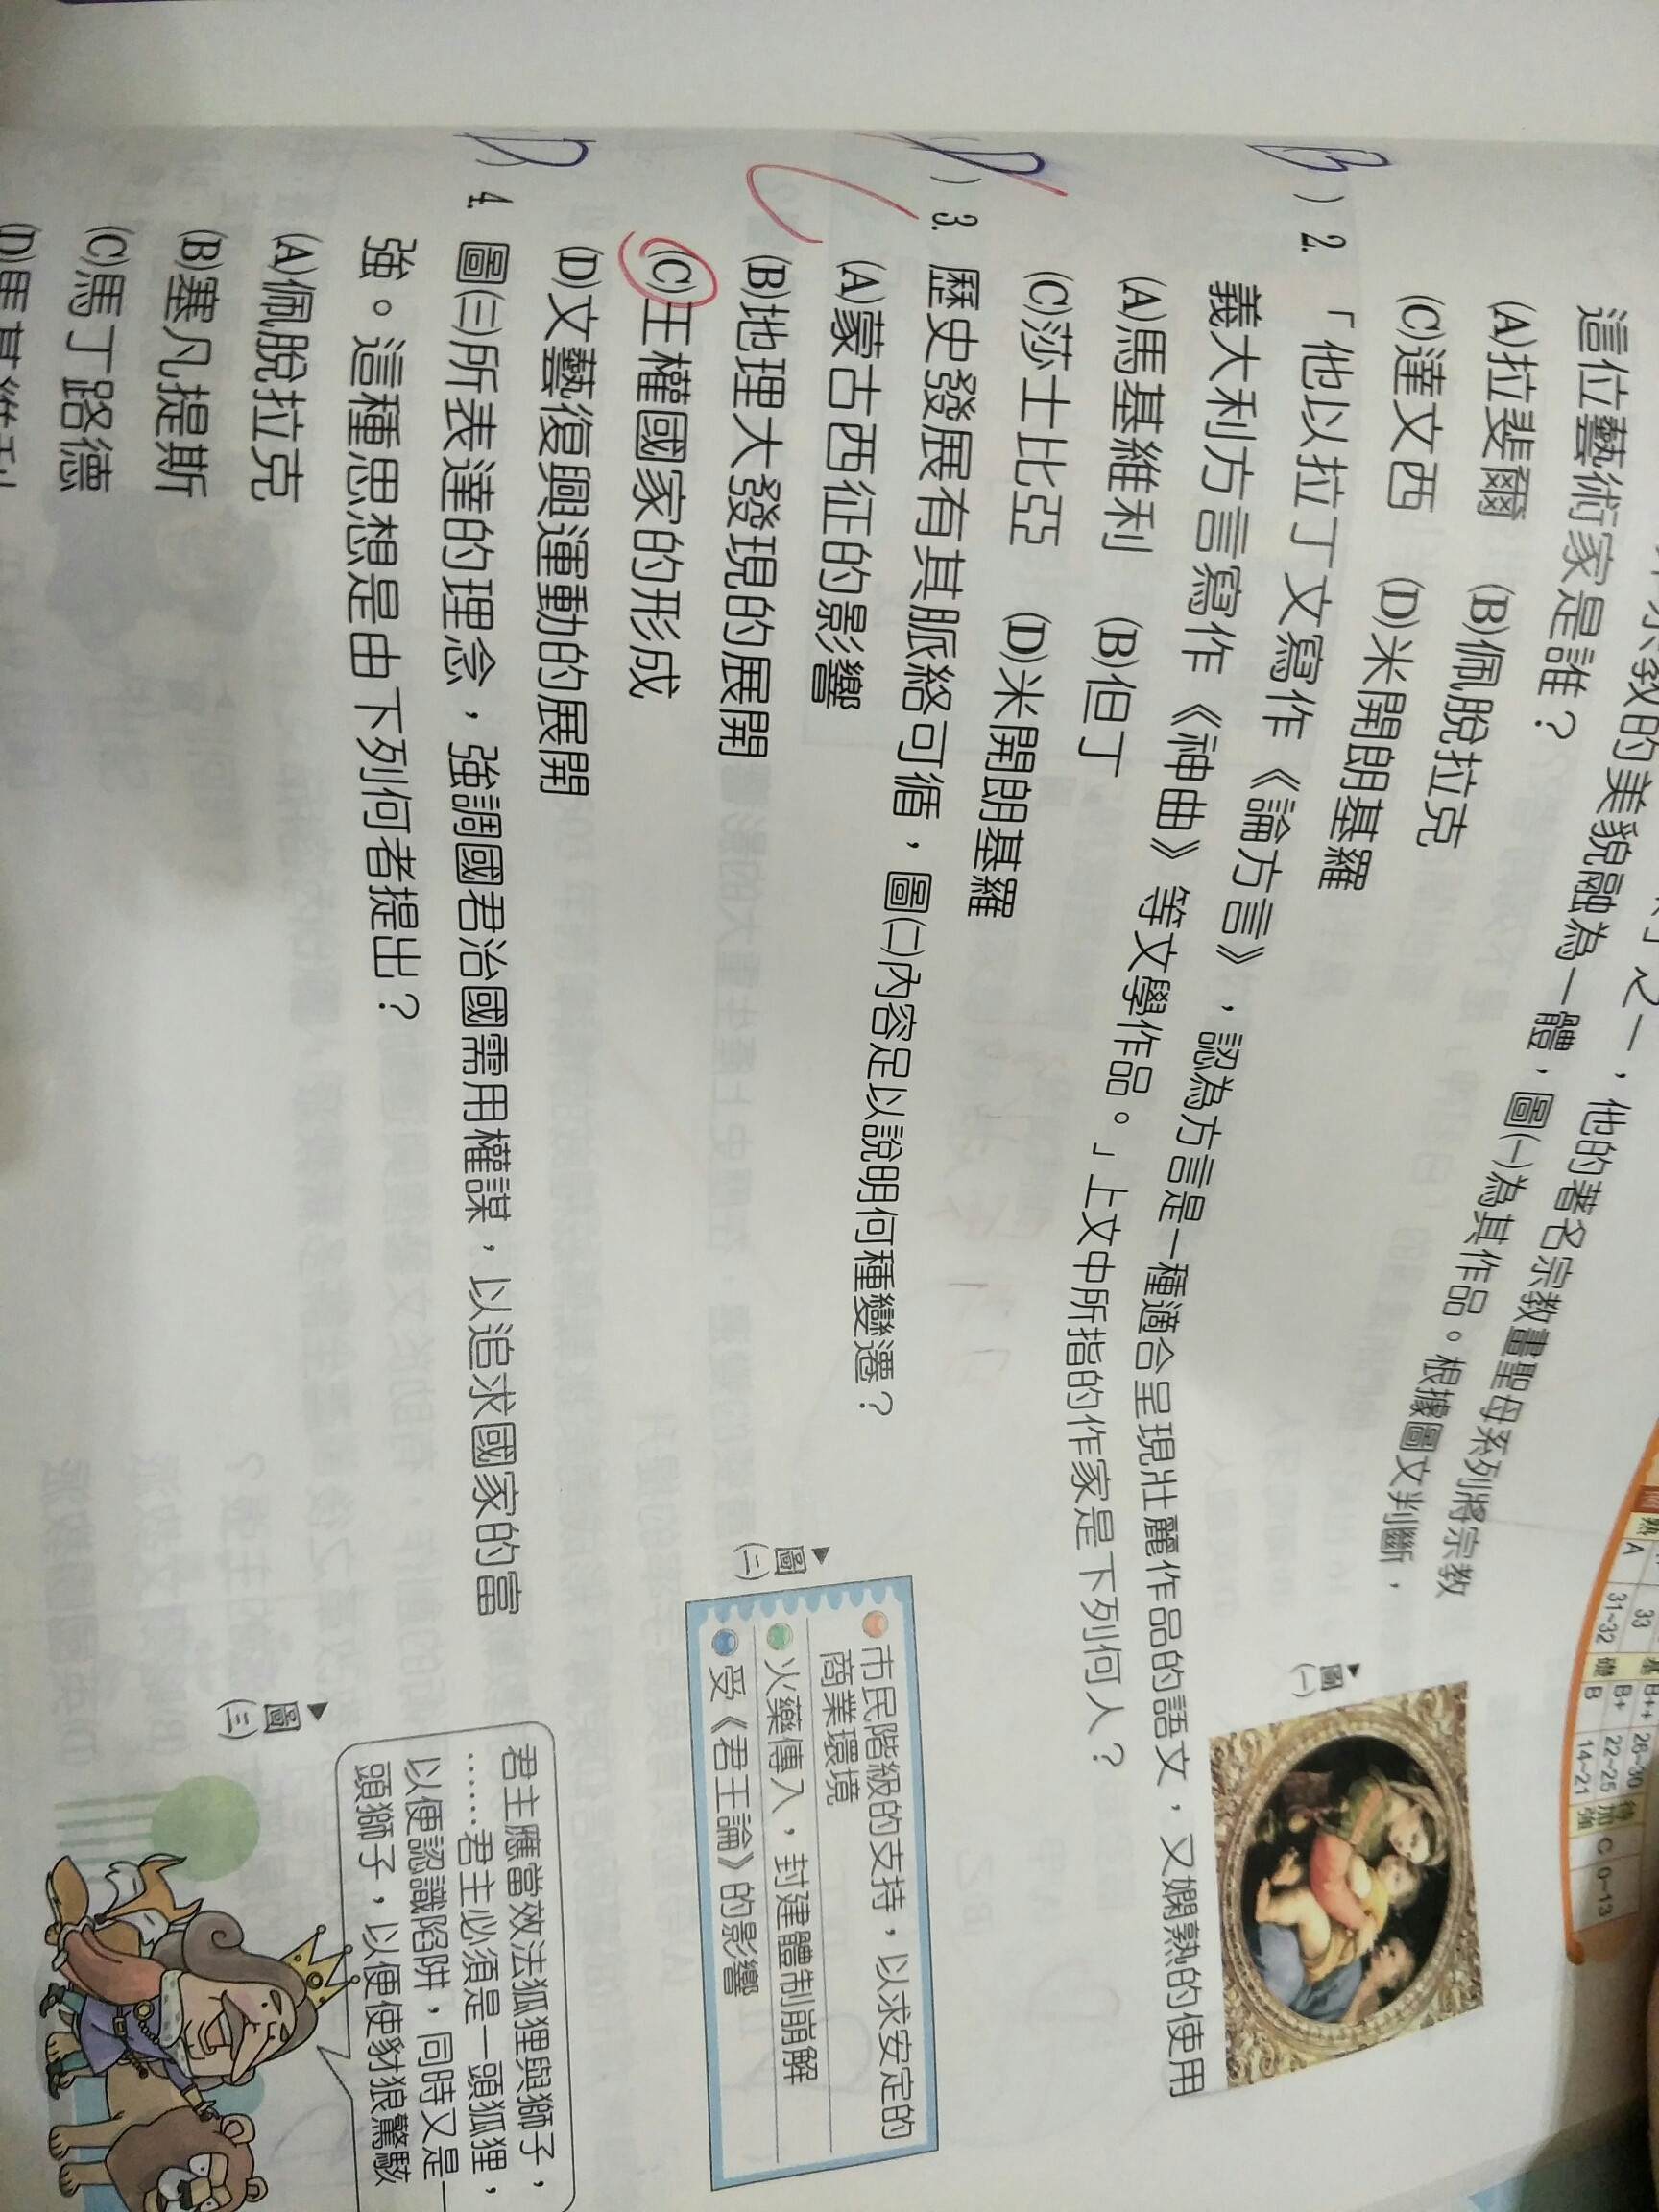 教的美貌融為一體，圖㈠為其作品。根據圖文判斷，
之一，他的著名宗教畫聖母系列將宗教
這位藝術家是誰？
(A)拉斐爾 (B)佩脫拉克
(C)達文西 (D)米開朗基羅
▲圖㈠
B ) 2. 「他以拉丁文寫作《論方言》，認為方言是一種適合呈現壯麗作品的語文，又嫻熟的使用
義大利方言寫作《神曲》等文學作品。」上文中所指的作家是下列何人？
(A)馬基維利 (B)但丁
(C)莎士比亞 (D)米開朗基羅
D ) 3. 歷史發展有其脈絡可循，圖㈡內容足以說明何種變遷？
(A)蒙古西征的影響
(B)地理大發現的展開
(C)王權國家的形成
(D)文藝復興運動的展開
▲圖㈡
市民階級的支持，以求安定的
商業環境
火藥傳入，封建體制崩解
受《君王論》的影響
D ) 4. 圖㈢所表達的理念，強調國君治國需用權謀，以追求國家的富
強。這種思想是由下列何者提出？
(A)佩脫拉克
(B)塞凡提斯
(C)馬丁路德
(D)馬基維利
▲圖㈢
君主應當效法狐狸與獅子，
……君主必須是一頭狐狸，
以便認識陷阱，同時又是一
頭獅子，以便使豺狼驚駭
A 33 B++ 26~30
31~32 B+ 22~25 C 0~13
礎 B 14~21 加強